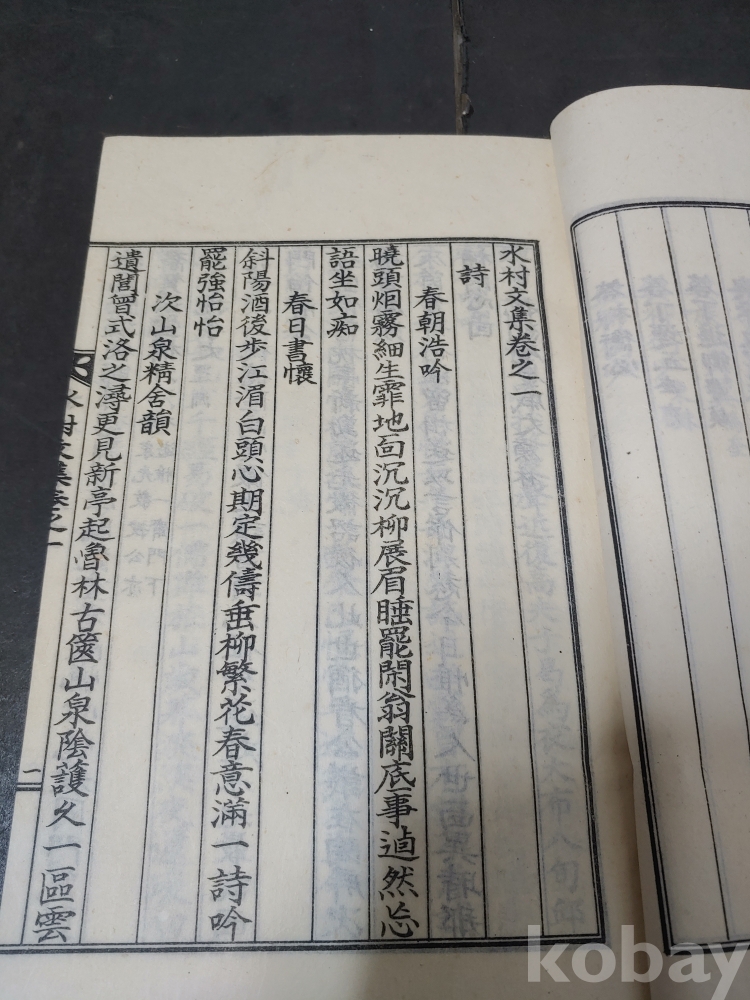 水村文集卷之一
詩
春朝浩吟
曉頭烟霧細生霏地面沉沉柳展眉睡罷閑翁關底事逌然忘
語坐如痴
春日書懷
斜陽酒後步江湄白頭心期定幾儔垂柳繁花春意滿一詩吟
罷強怡怡
次山泉精舍韻
遺閭曾式洛之潯更見新亭起魯林古篋山泉陰護久一區雲
水村文集卷之一
一
kobay